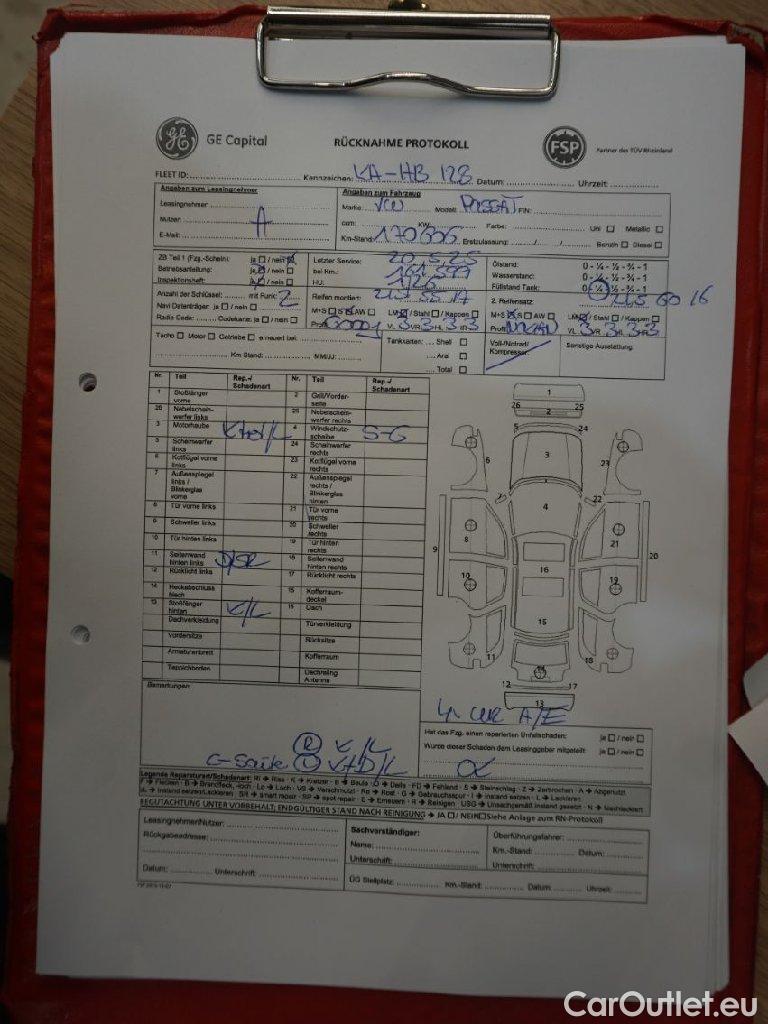 GE Capital RÜCKNAHME PROTOKOLL FSP Partner des TÜV Rheinland
FLEET ID: Kennzeichen: KA-HB 128 Datum: Uhrzeit:
Angaben zum Leasingnehmer
Leasingnehmer:
Nutzer:
E-Mail:
Angaben zum Fahrzeug
Marke: VW Modell: PASSAT FIN:
ccm: KW: Farbe: Uni □ Metallic □
Km-Stand: Erstzulassung: / / Benzin □ Diesel □
ZB Teil 1 (Fzg.-Schein): ja □ / nein
Betriebsanleitung: ja / nein □
Inspektionsheft: / nein □
Letzter Service: 20.5.25
bei Km.:
HU: 1/26
Ölstand: 0 - ¼ - ½ - ¾ - 1
Wasserstand: 0 - ¼ - ½ - ¾ - 1
Füllstand Tank: 0 - ¼ - ½ - ¾ - 1
Anzahl der Schlüssel: mit Funk: 2
Navi Datenträger: ja □ / nein □
Radio Code: Codekarte: ja □ / nein □
Reifen montiert: 215 55 17
M+S □ S AW □ LM / Stahl □ / Kappen □
Profil VL 3 VR 3 HL 3 HR 3
2. Reifensatz: 215 60 16
M+S S □ AW □ LM / Stahl □ / Kappen □
VL 3 VR 3 HL 3 HR 3
Tacho □ Motor □ Getriebe □ erneuert bei:
Km Stand: MM/JJ:
Tankkarten: Shell □
Aral □
Total □
Voll-/Notrad/
Kompressor:
Sonstige Ausstattung:
Nr. Teil Rep.-/ Schadenart Nr. Teil Rep.-/ Schadenart
1 Stoßfänger vorne 2 Grill/Vorderseite
26 Nebelscheinwerfer links 25 Nebelscheinwerfer rechts
3 Motorhaube 4 Windschutzscheibe S-G
5 Scheinwerfer links 24 Scheinwerfer rechts
6 Kotflügel vorne links 23 Kotflügel vorne rechts
7 Außenspiegel links / Blinkerglas vorne 22 Außenspiegel rechts / Blinkerglas
8 Tür vorne links 21 Tür vorne rechts
9 Schweller links 20 Schweller rechts
10 Tür hinten links 19 Tür hinten rechts
11 Seitenwand hinten links D/SR 18 Seitenwand hinten rechts
12 Rücklicht links 17 Rücklicht rechts
14 Heckabschlussblech 15 Kofferraumdeckel
13 Stoßfänger hinten K/L Dach
Dachverkleidung Türverkleidung
Vordersitze Rücksitze
Armaturenbrett Kofferraum
Teppichboden
1
26 25
2
5 24
6 3 23
22
4
9 8 21 20
16
10 19
15
11 14 18
12 17
13
4x A/E
Bemerkungen
R K/L
C-Säule L
Hat das Fzg. einen reparierten Unfallschaden: ja □ / nein □
Wurde dieser Schaden dem Leasinggeber mitgeteilt: ja □ / nein □
Legende Reparaturart/Schadenart: RI → Riss - K → Kratzer - B → Beule - D → Delle - FD → Fehlend - S → Steinschlag - Z → Zerbrochen - A → Abgenutzt
BEGUTACHTUNG UNTER VORBEHALT; ENDGÜLTIGER STAND NACH REINIGUNG → JA □ / NEIN □ Siehe Anlage zum RN-Protokoll
Leasingnehmer/Nutzer:
Rückgabeadresse:
Datum: Unterschrift:
Sachverständiger:
Name:
Unterschrift:
Überführungsfahrer:
Km.-Stand: Datum:
Unterschrift:
ÜG Stellplatz: Km.-Stand: Datum Uhrzeit:
CarOutlet.eu